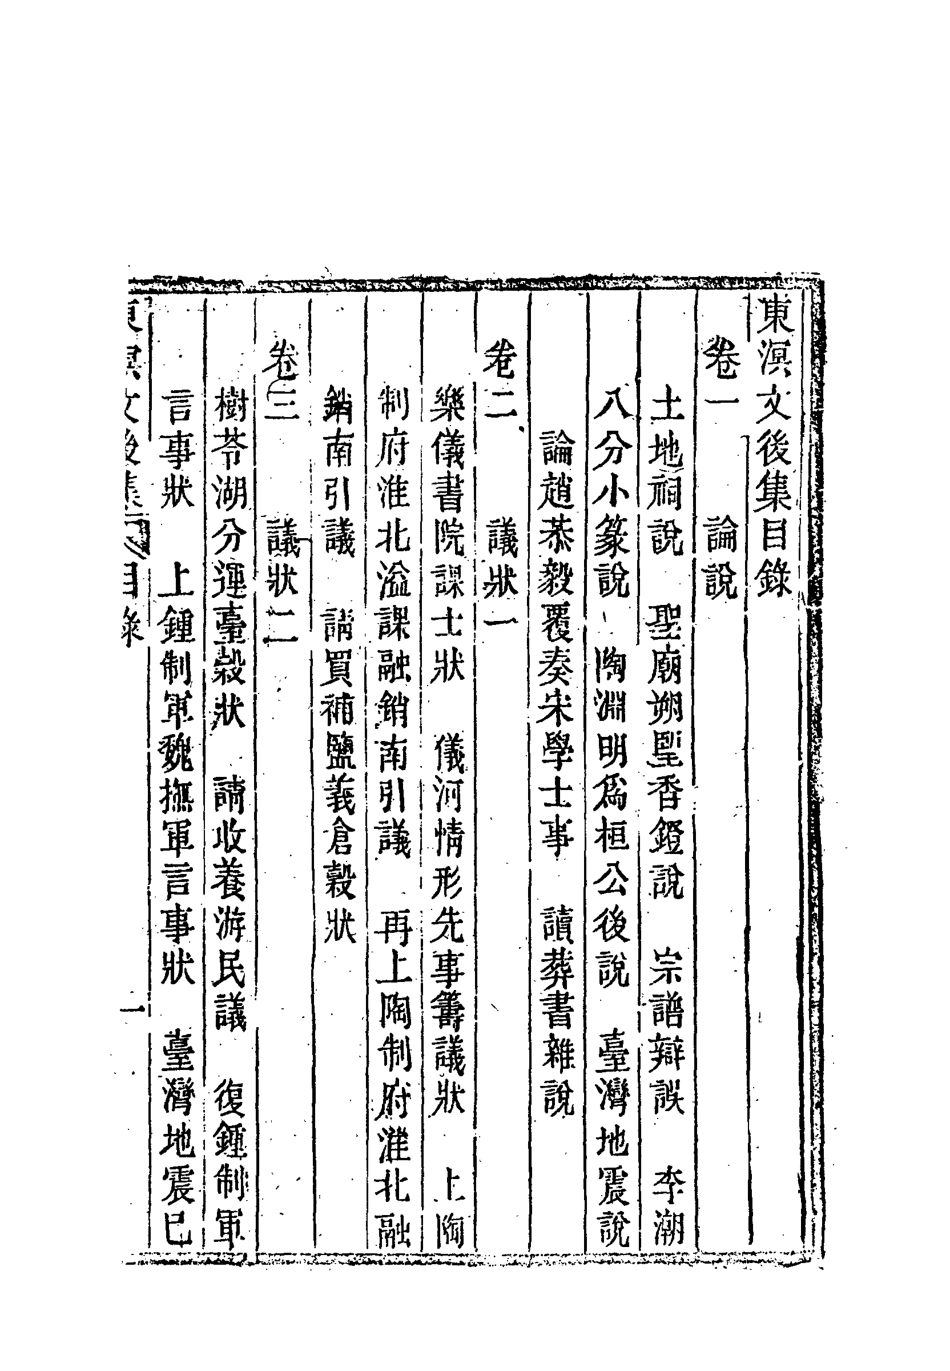 東溟文後集目錄
卷一　論說
土地祠說　聖廟朔望香鐙說　宗譜辯誤　李潮
八分小篆說　陶淵明爲桓公後說　臺灣地震說
論趙恭毅覆奏宋學士事　讀葬書雜說
卷二　議狀一
樂儀書院課士狀　儀河情形先事籌議狀　上陶
制府淮北溢課融銷南引議　再上陶制府淮北融
銷南引議　請買補鹽義倉穀狀
卷三　議狀二
樹苓湖分運臺穀狀　請收養游民議　復鍾制軍
言事狀　上鍾制軍魏撫軍言事狀　臺灣地震巳
東溟文後集　目錄　一